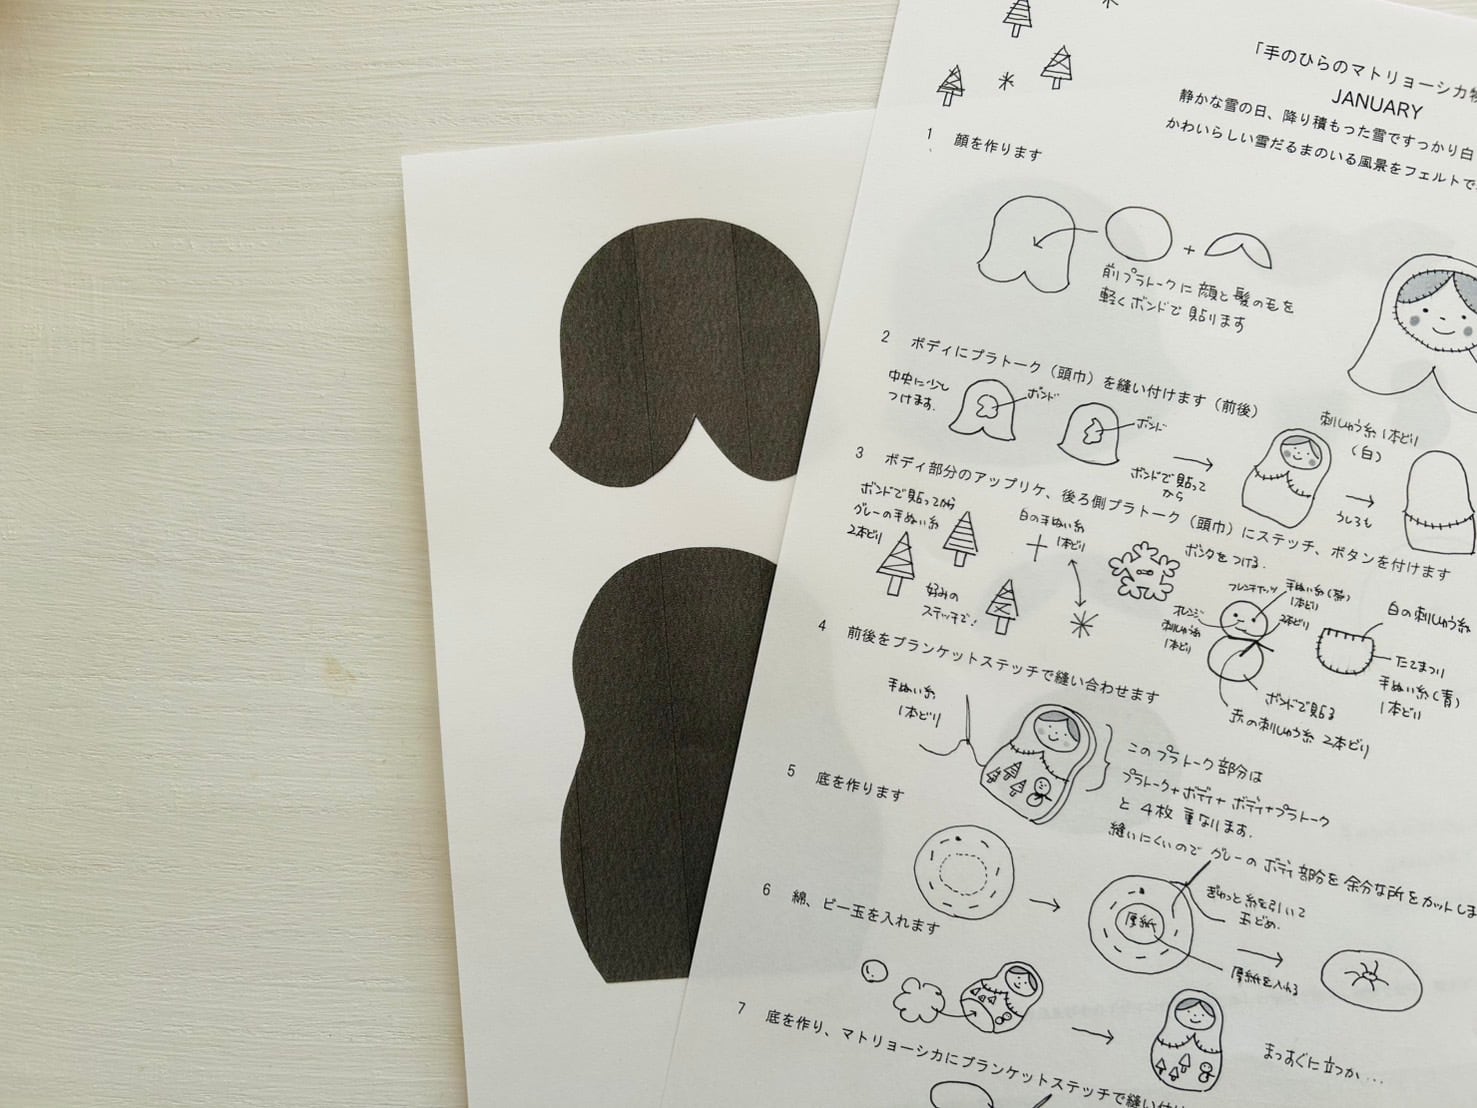 「手のひらのマトリョーシカ
JANUARY
静かな雪の日、降り積もった雪ですっかり白
かわいらしい雪だるまのいる風景をフェルトで
1 顔を作ります
+
前プラトークに顔と髪の毛を
軽くボンドで貼ります
2 ボディにプラトーク（頭巾）を縫い付けます（前後）
中央に少し
つけます.
ボンド
ボンド
ボンドで貼って
から
刺しゅう糸1本どり
(白)
うしろも
3 ボディ部分のアップリケ、後ろ側プラトーク（頭巾）にステッチ、ボタンを付けます
ボンドで貼ってから
グレーの手ぬい糸
2本どり
好みの
ステッチで!
白の手ぬい糸
1本どり
ボタンをつける.
フレンチナッツ
手ぬい糸(茶)
1本どり
2本どり
オレンジ
刺しゅう糸
1本どり
ボンドで貼る
赤の刺しゅう糸 2本どり
白の刺しゅう糸
たてまつり
手ぬい糸(青)
1本どり
4 前後をブランケットステッチで縫い合わせます
手ぬい糸
1本どり
このプラトーク部分は
プラトーク+ボディ+ボディ+プラトーク
と 4枚 重なります.
縫いにくいので グレーの ボディ部分を 余分な所をカットしま
5 底を作ります
厚紙
ぎゅっと糸を引いて
玉どめ.
厚紙を入れる
6 綿、ビー玉を入れます
まっすぐに立つか...
7 底を作り、マトリョーシカにブランケットステッチで縫い付け